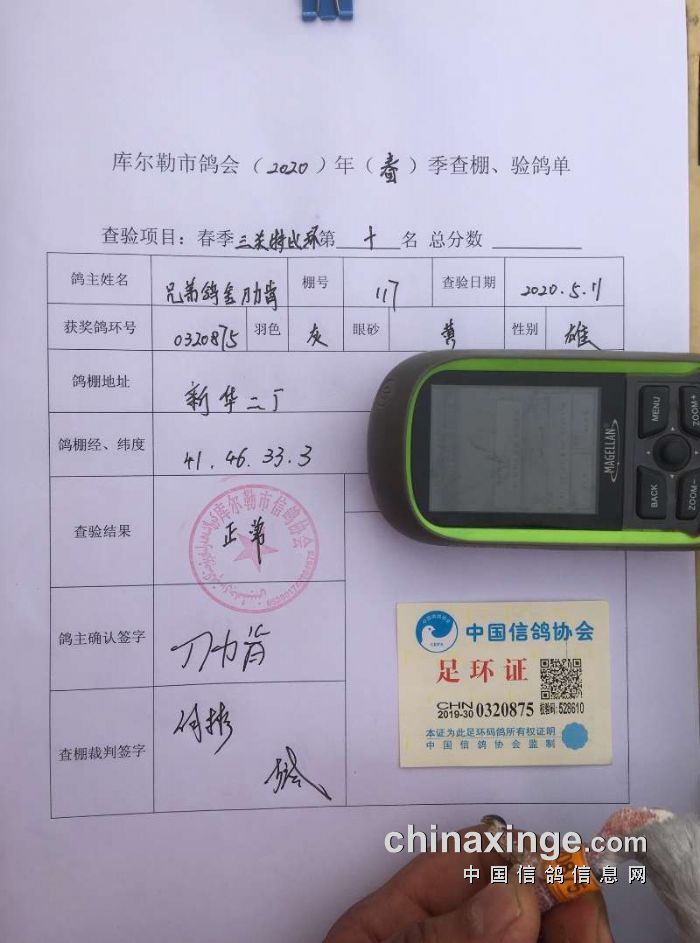 库尔勒市鸽会（2020）年（春）季查棚、验鸽单
查验项目：春季三关特比环第 十 名 总分数
鸽主姓名 兄弟鸽舍刀力肯 棚号 117 查验日期 2020.5.11
获奖鸽环号 0320875 羽色 灰 眼砂 黄 性别 雄
鸽棚地址 新华二厂
鸽棚经、纬度 41.46.33.3
查验结果 正常
库尔勒市信鸽协会
鸽主确认签字 刀力肯
查棚裁判签字 何彬
MAGELLAN
MENU
BACK
ZOOM+
ZOOM−
中国信鸽协会
足环证
CHN
2019-30 0320875 校验码:528610
本证为此足环码鸽所有权证明
中国信鸽协会监制
chinaxinge.com
中国信鸽信息网